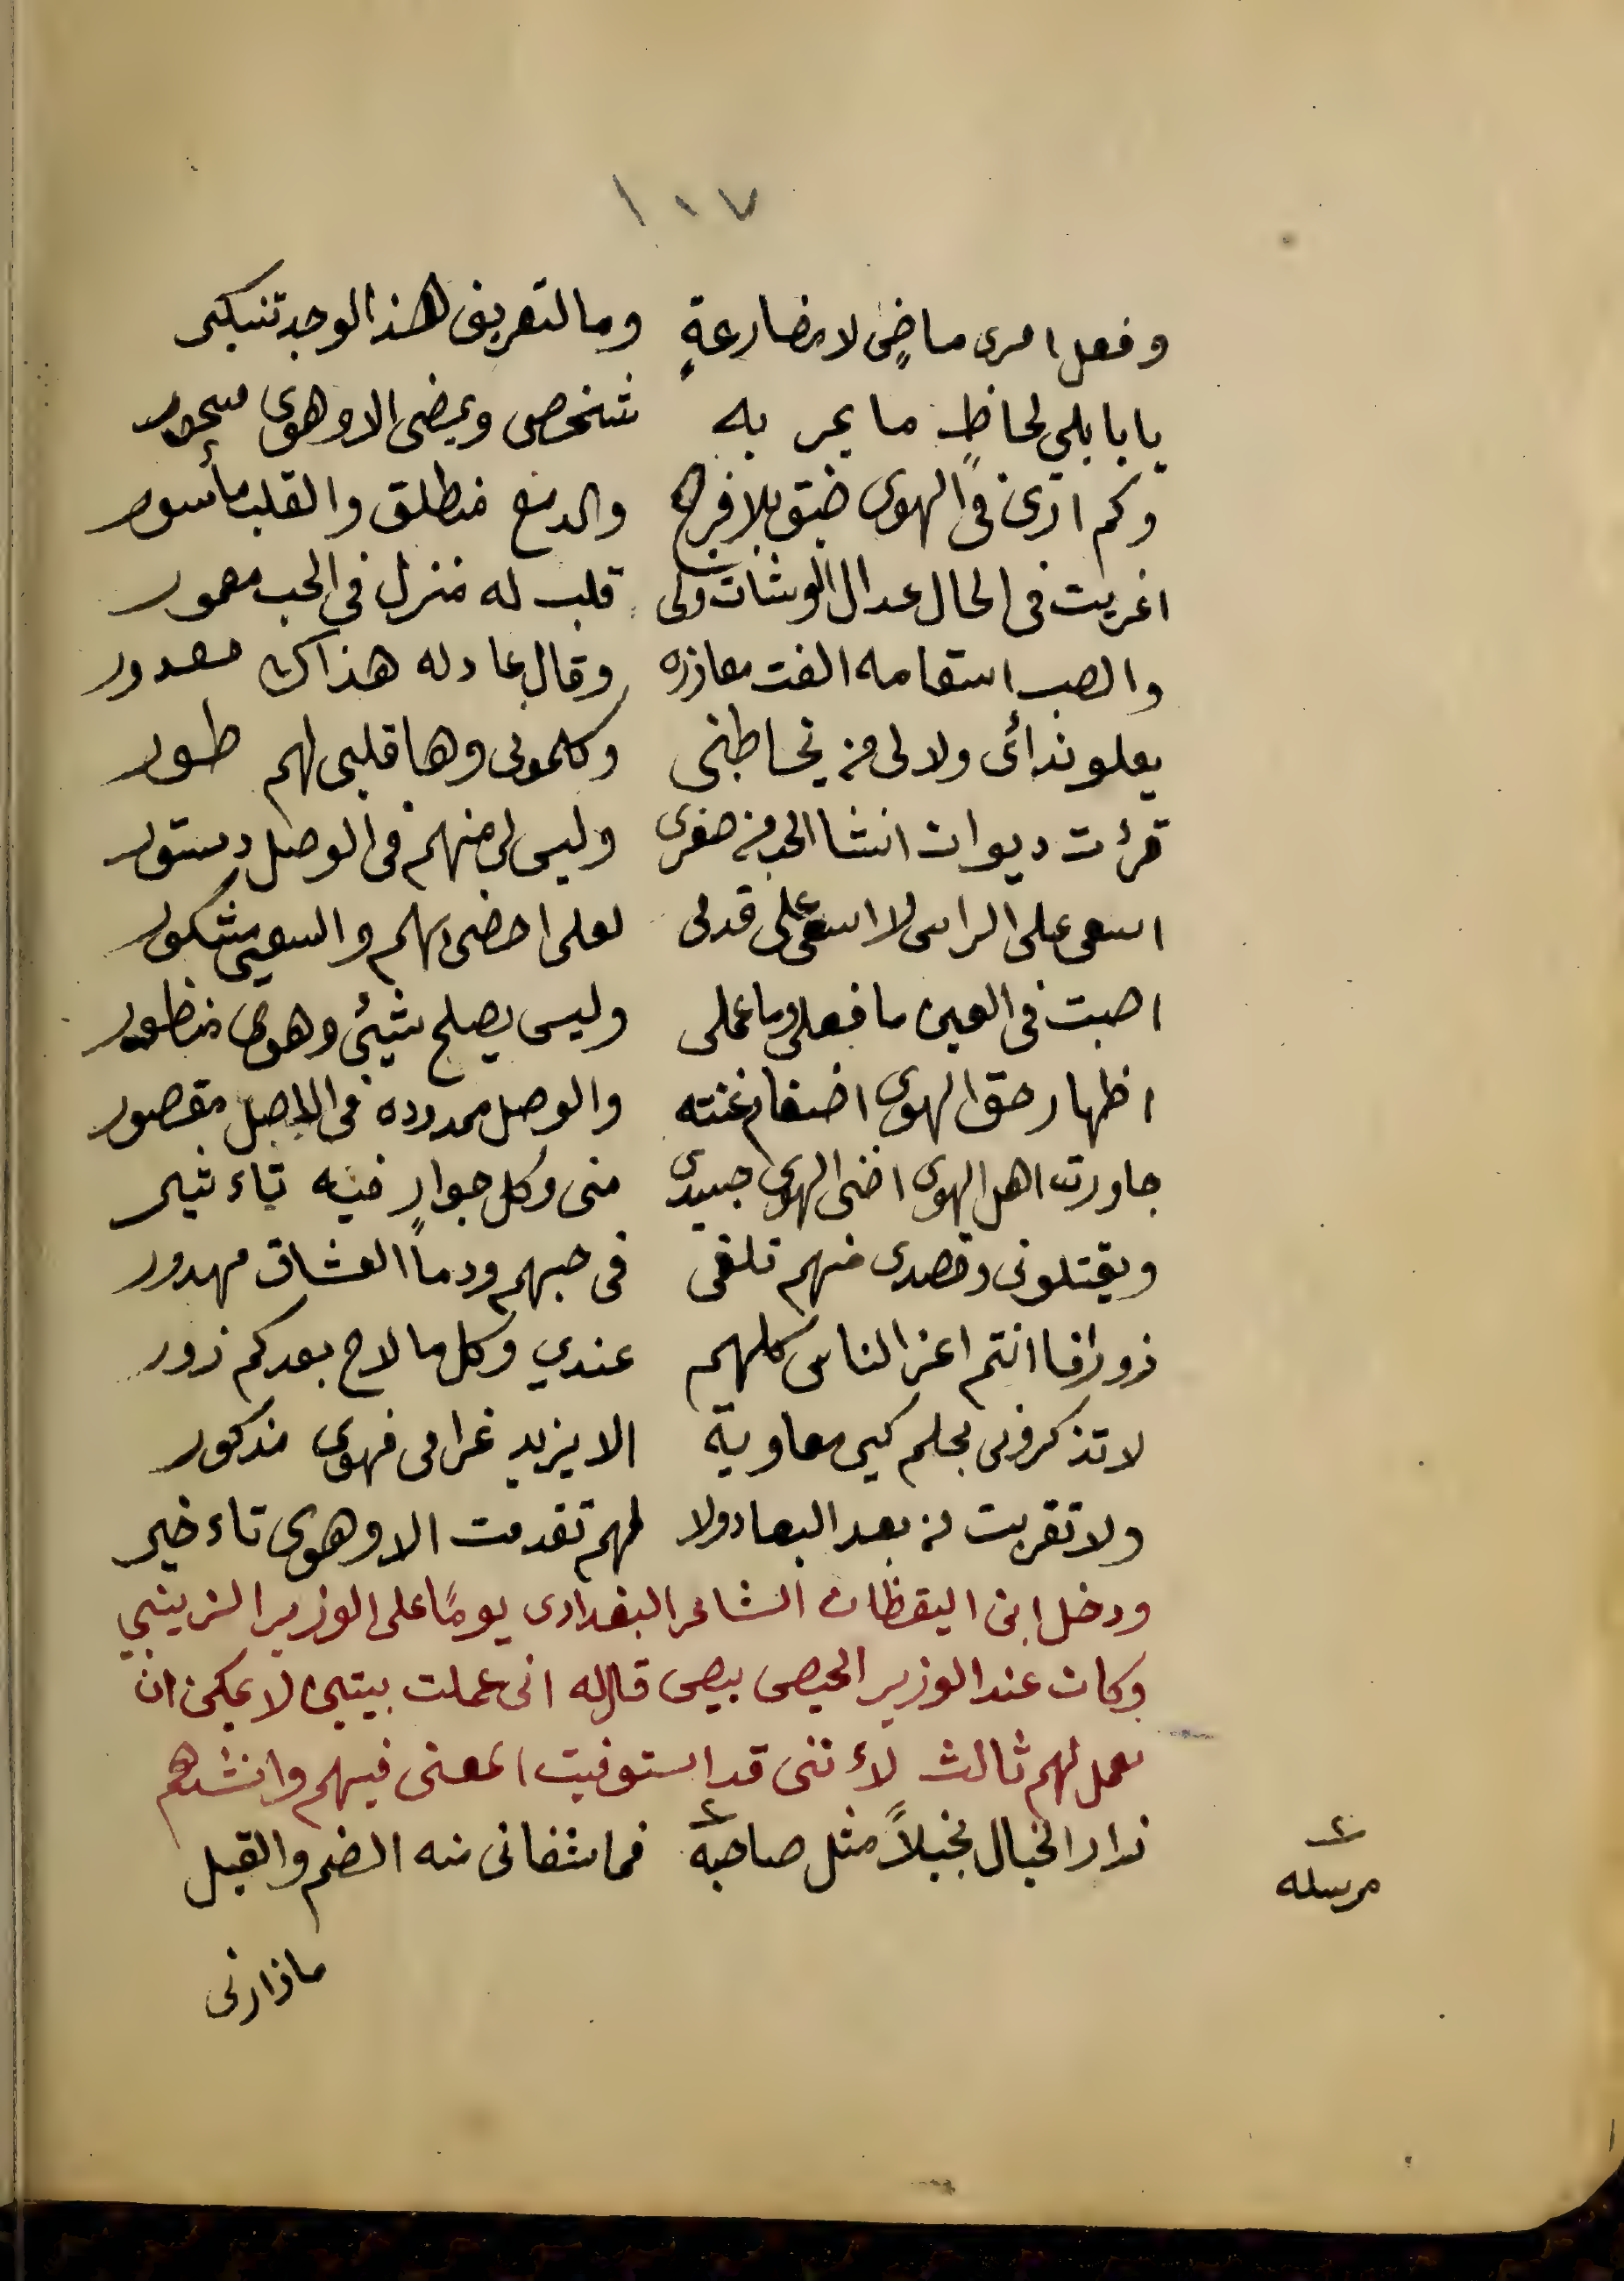 ١٠٧
وفعل امرى ماضٍى لا مضارعةٍ وما لتعريف لهذ الوجد تنكير
يا بابلي لحاظٍ ما يمر به شخصى ويمضى الا وهوى مسحور
وكم ارى فى الهوى ضيق بلا فرج والدمع منطلق والقلب مأسور
اغريت فى الحال عدال الوشات ولى قلب له منزل فى الحب معمور
والصب اسقامه الفت معاذره وقال عادله هذاك معدور
يعلو ندائى ولا لى من يخاطبنى وكلمونى وها قلبى لهم طور
قرئت ديوان انشا الحب من صغرى وليس لى منهم فى الوصل دستور
اسعى على الراس لا اسعى على قدمى لعلى احضى بهم والسعي مشكور
اصبت فى العين ما فعلى وما عملى وليس يصلح شيئ وهوى منظور
اظهار حق الهوى اضغام غنته والوصل ممدوده فى الاصل مقصور
جاورت اهل الهوى اضنى الهوى جسدى منى وكل جوارٍ فيه تاءثير
ويقتلونى وقصدى منهم تلفى فى حبهم ودماً العشاق مهدور
زورا فما انتم اعز الناس كلهم عندي وكل ما لاح بعدكم زور
لا تذكرونى بحلم كى معاوية الا يزيد غرامى فهوى مذكور
ولا تقربت من بعد البعاد ولا لهم تقدمت الا وهوى تاءخير
ودخل ابن اليقظان الشاعر البغدادى يومًا على الوزير الزينبي
وكان عند الوزير الحيص بيص قال له انى عملت بيتين لا يمكن ان
يعمل لهم ثالث لاءننى قد استوفيت المعنى فيهم وانشدهم
زار الخيال بخيلاً مثل صاحبه فما شفانى منه الضم والقبل
٢
مرسله
ما زارنى